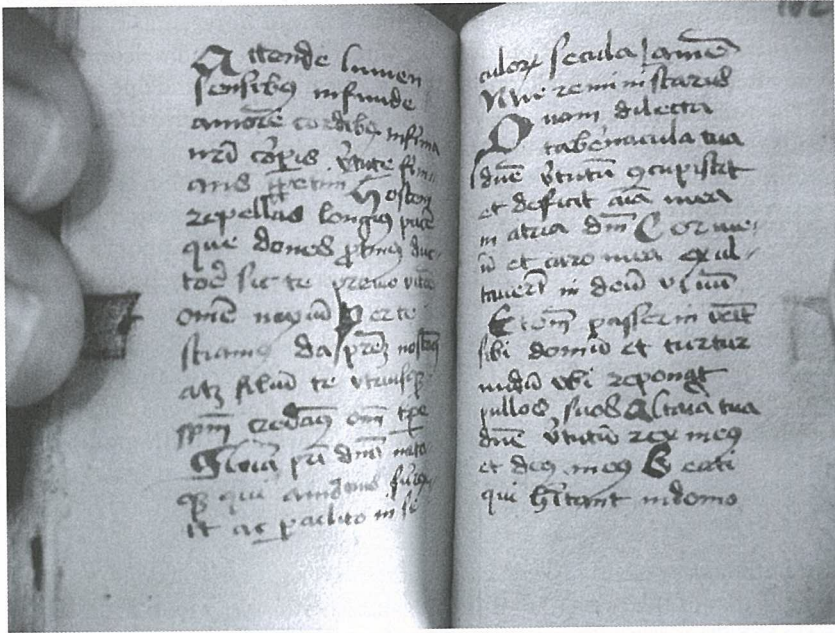 Attende lumen
sensibꝰ infunde
amorē cordibꝰ infirma
nr̄i cōrꝑis v̄tute firm
ans ꝑpetim Hostem
repellas longiꝰ pacē
que dones ꝓtinꝰ duc
tore sic te previo vitē
om̄e noxiū Per te
sciamꝰ da prēꝫ noscaꝰ
atꝫ filiū te vtriusqꝫ
spm̄ credaꝰ om̄i tp̄e
Gloīa pr̄i dn̄o nato
qꝫ qui a mortuis surrex
it ac ꝑaclito in se
culoꝝ secula amē
Ne reminiscaris
Quam dilecta
tab̄nacula tua
dn̄e v̄tutū ꝯcupiscit
et deficit aīa mea
in atria dn̄i Cor me
ū et caro mea exul
tauer̄t in deū viuū
Etem̄ passer inveīt
sibi domū et turtur
nidū vbi reponat
pullos suos Altaīa tua
dn̄e v̄tutū rex meꝰ
et deꝰ meꝰ Beati
qui hītant in domo